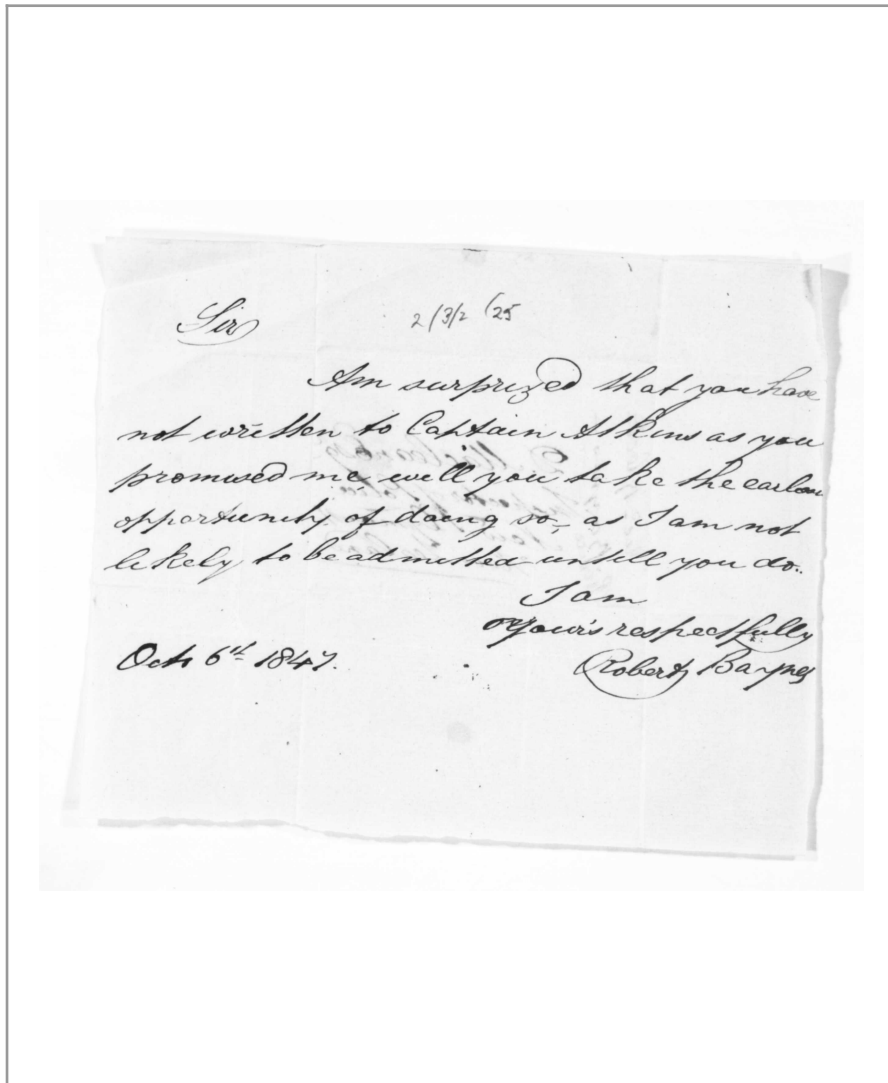 Sir
2/3/2 (25
Am surprized that you have
not written to Captain Atkins as you
promised me will you take the
opportunity of doing so, as I am not
likely to be admitted untill you do.
I am
Your's respectfully
Octr 6th 1847.
Robert Baynes